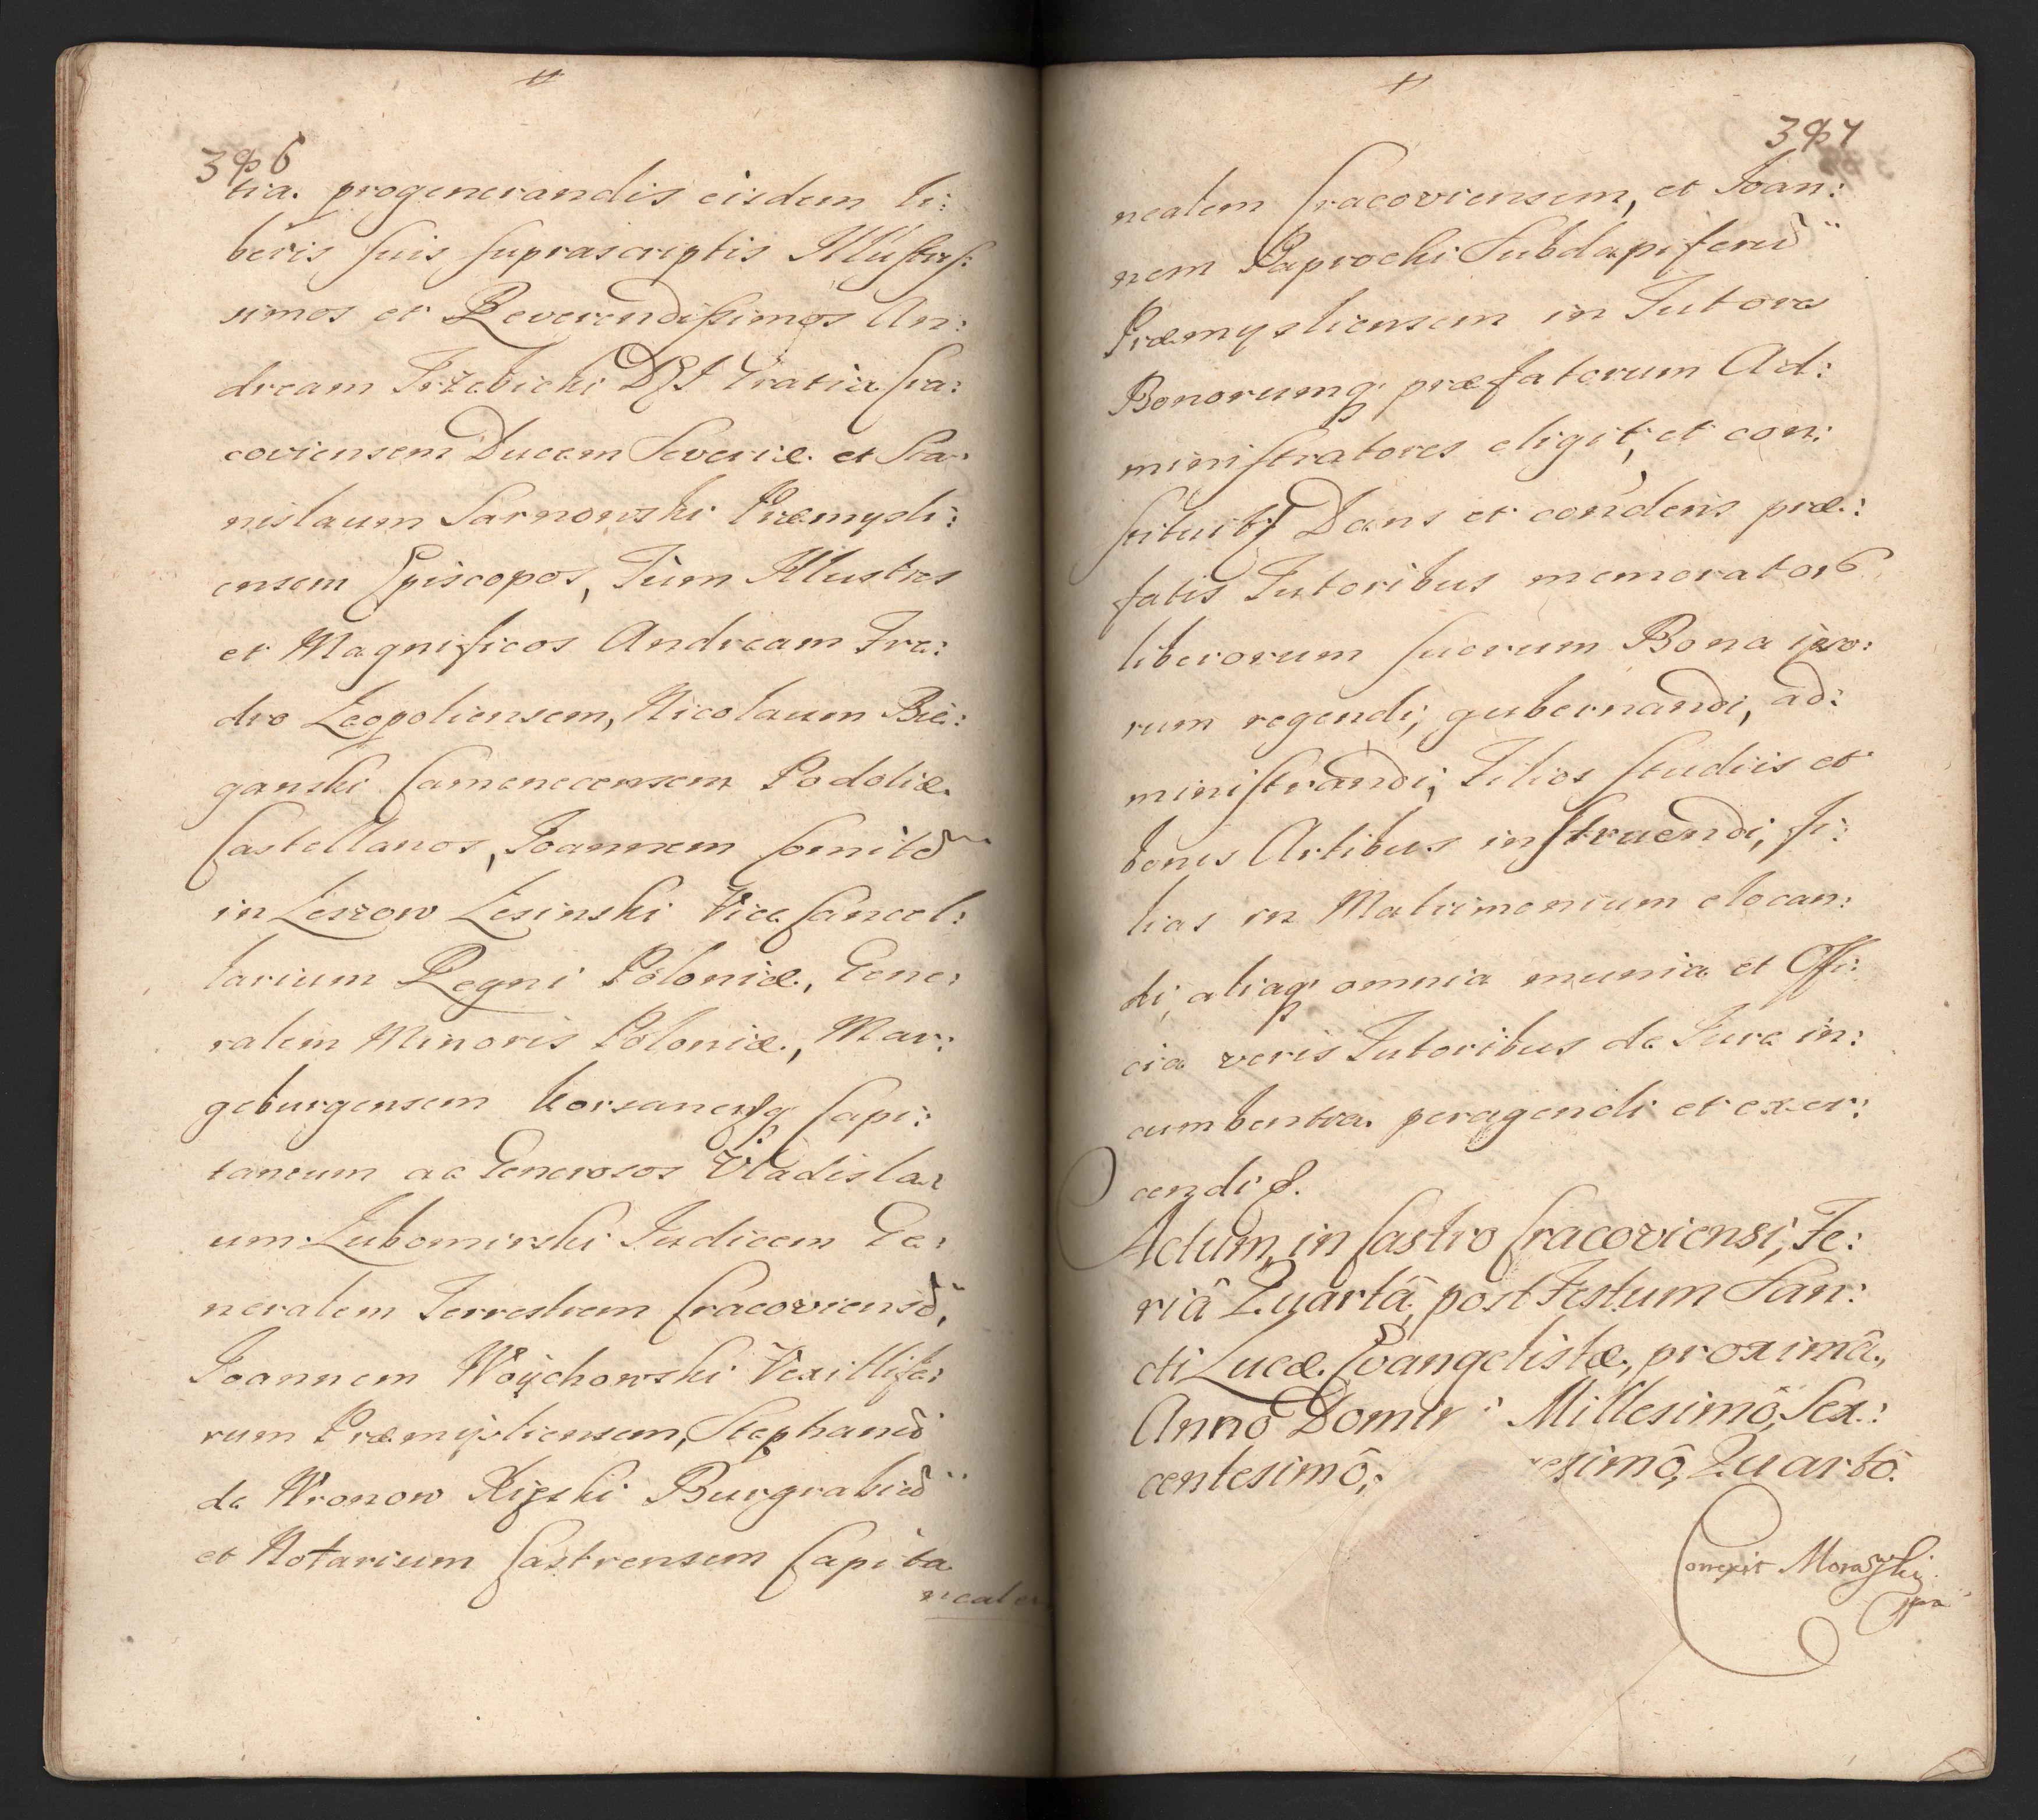 396
tia. progenerandis eisdem li:
beris suis suprascriptis Illustris:
simos et Reverendissimos An:
dream Trzebicki DEI Gratia Cra:
coviensem Ducem Severiæ et Sta:
nislaum Sarnowski Præmysli:
ensem Episcopos, Tum Illustres
et Magnificos Andream Fre:
dro Leopoliensem, Nicolaum Bie:
ganski Camenecensem Podoliæ
Castellanos, Joannem Comitem
in Leszow Lesinski Vice Cancel:
larium Regni Poloniæ, Gene:
ralem Minoris Poloniæ, Mar:
geburgensem Korsanensq Capi:
taneum ac Generosos Vladisla:
um Lubomirski Judicem Ge:
neralem Terrestrem Cracoviensem,
Joannem Woÿchowski Vexillife:
rum Præmÿsliensem, Stephanum
de Wronow Burgrabium
et Notarium Castrensem Capita
neale
397
nealem Cracoviensem, et Joan:
nem Paprocki Subdapiferum
Præmysliensem in Tutores
Bonorumq præfatorum Ad:
ministratores eligit, et con:
stituit Dans et condens præ:
fatis Tutoribus memorator
liberorum suorum Bona ipso:
rum regendi, gubernandi, ad:
ministrandi, Filios studiis et
bonis Artibus instruendi, fi:
lias in Matrimonium elocan:
di, aliaq omnia munia et Offi:
cia veris Tutoribus de Jure in:
cumbentia peragendi et exer:
cendi
Actum in Castro Cracoviensi, Fe:
riâ Quartâ post Festum San:
cti Lucæ Evangelistæ, proximâ,
Anno Domi Millesimô, Sex:
centesimô, esimô, Quartô.
Correxit Morawski
mpa